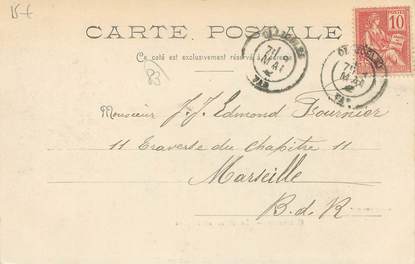 15 f
CARTE POSTALE
Ce côté est exclusivement réservé à l'adresse
10
MAI
MAI
VAR
VAR
83
Monsieur J.-J. Edmond Fournier
11 Traverse du Chapitre 11
Marseille
B. d. R.